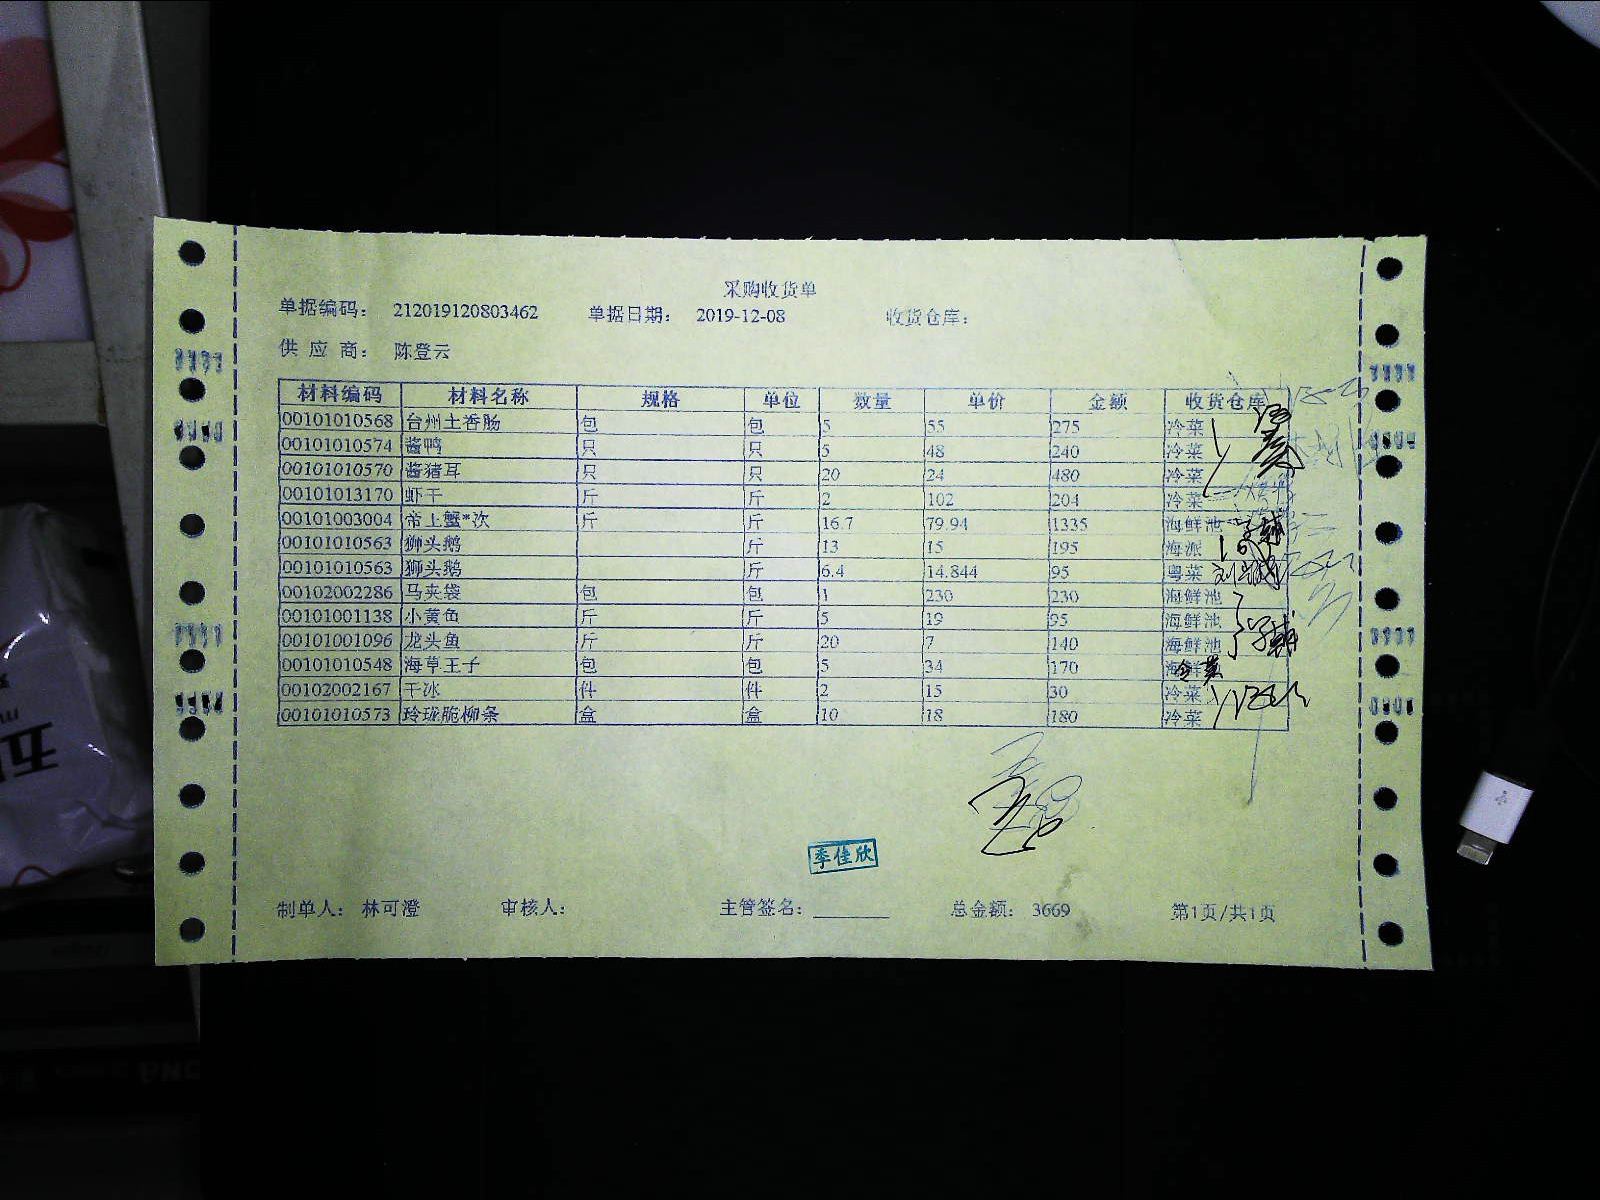 采购收货单
单据编码： 212019120803462 单据日期： 2019-12-08 收货仓库：
供 应 商： 陈登云
材料编码 材料名称 规格 单位 数量 单价 金额 收货仓库
00101010568 台州土香肠 包 包 5 55 275 冷菜
00101010574 酱鸭 只 只 5 48 240 冷菜
00101010570 酱猪耳 只 只 20 24 480 冷菜
00101013170 虾干 斤 斤 2 102 204 冷菜
00101003004 帝王蟹*次 斤 斤 16.7 79.94 1335 海鲜池
00101010563 狮头鹅 斤 13 15 195 海派
00101010563 狮头鹅 斤 6.4 14.844 95 粤菜
00102002286 马夹袋 包 包 1 230 230 海鲜池
00101001138 小黄鱼 斤 斤 5 19 95 海鲜池
00101001096 龙头鱼 斤 斤 20 7 140 海鲜池
00101010548 海草王子 包 包 5 34 170 海鲜 冷菜
00102002167 干冰 件 件 2 15 30 冷菜
00101010573 玲珑脆柳条 盒 盒 10 18 180 冷菜
季佳欣
制单人： 林可澄 审核人： 主管签名： 总金额： 3669 第1页/共1页